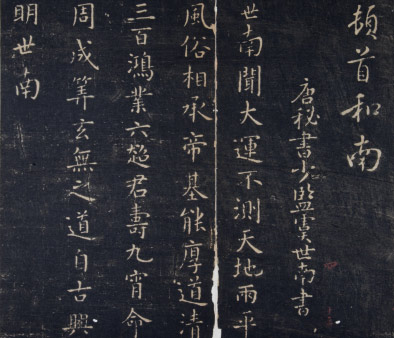 頓首和南
唐秘書少監虞世南書
世南聞大運不測天地兩平
風俗相承帝基能厚道清
三百鴻業六超君壽九霄命
周成筭玄無之道自古興
明世南